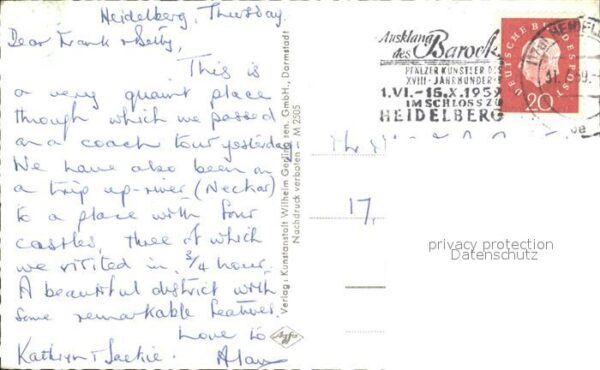 Heidelberg, Thursday.
Dear Frank & Betty,
This is
a very quaint place
through which we passed
on a coach tour yesterday.
We have also been on
a trip up-river (Neckar)
to a place with four
castles, three of which
we visited in 3/4 hour.
A beautiful district with
some remarkable features.
Love to
Kathryn & Jackie. Alan
Verlag: Kunstanstalt Wilhelm GmbH., Darmstadt
Nachdruck verboten M 2305
Agfa
Ausklang
des Barock
PFÄLZER KÜNSTLER DES
XVIII. JAHRHUNDERTS
1.VI.-16.X.1959
IM SCHLOSS ZU
HEIDELBERG
HEIDELB
DEUTSCHE BUNDESPOST
20
17,
privacy protection
Datenschutz